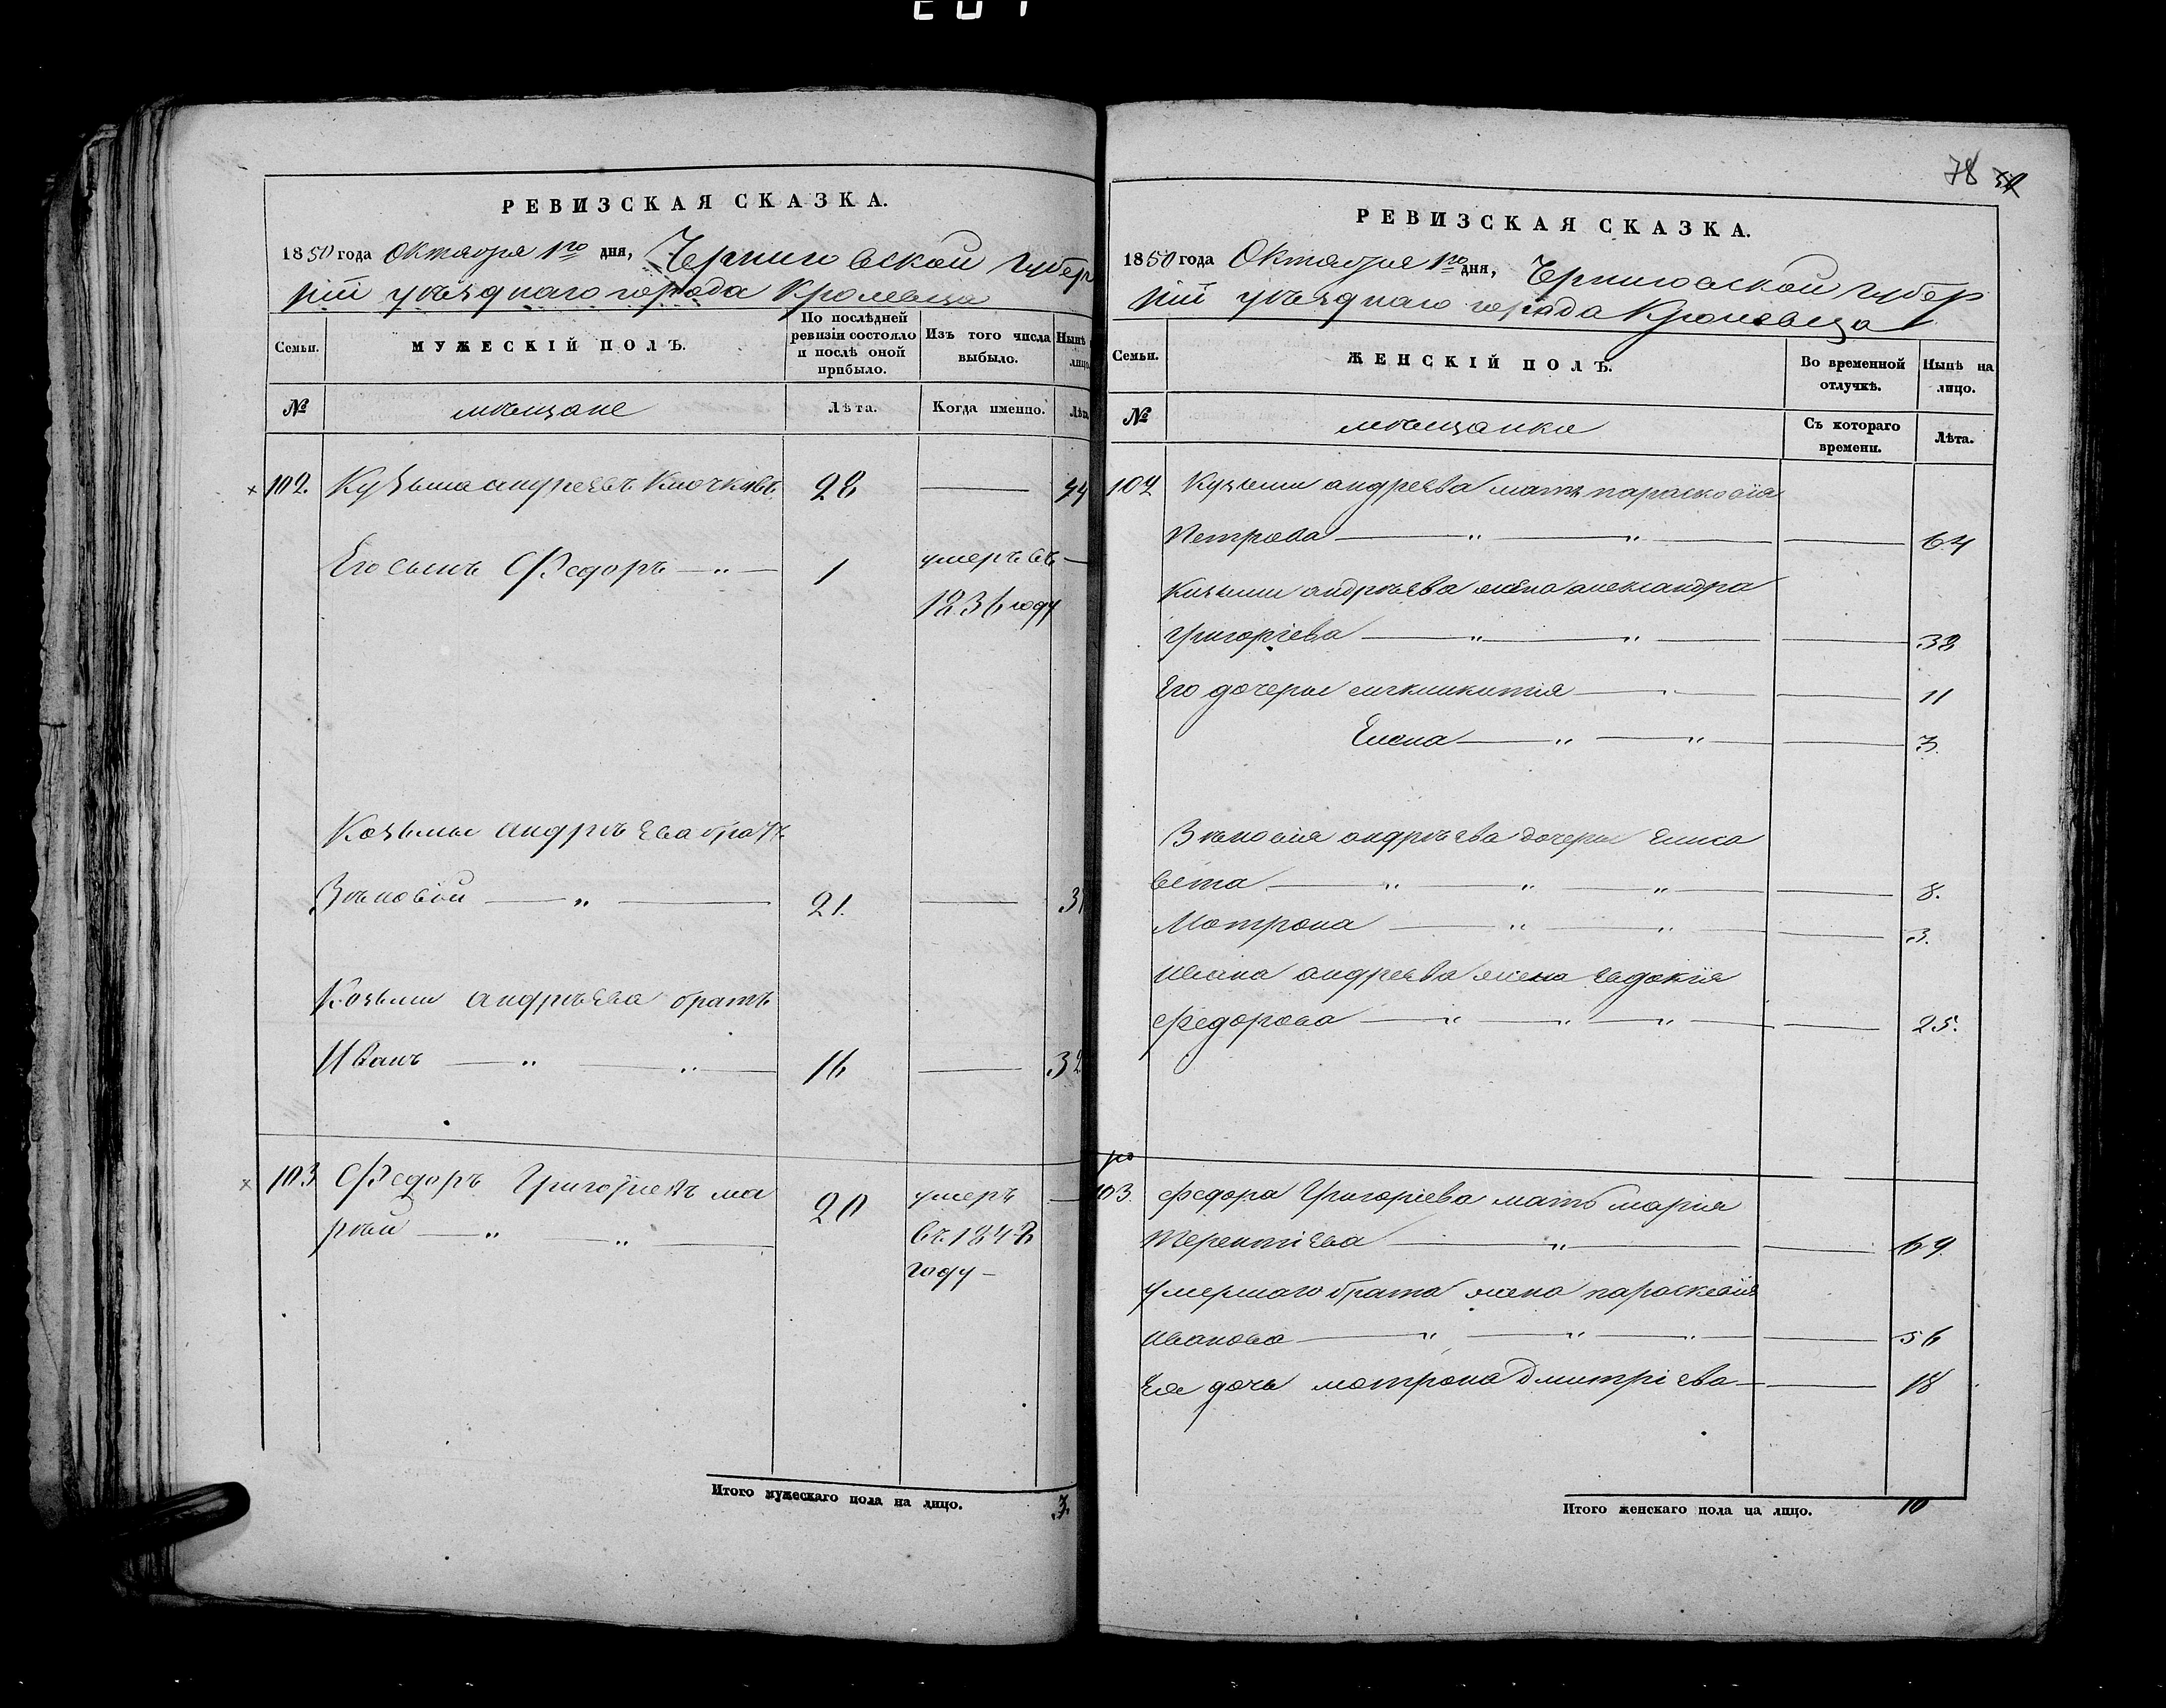 РЕВИЗСКАЯ СКАЗКА.
1850 года Октября 1го дня, Черниговской Губер
ніи уѣзднаго города Кролевца
Семьи.
МУЖЕСКІЙ ПОЛЪ.
По послѣдней ревизіи состояло и послѣ оной прибыло.
Изъ того числа выбыло.
Нынѣ
лицо
№
мѣщане
Лѣта.
Когда именно.
Лѣта
102. Кузьма андреевъ Клочковъ 28 — 44
Его сынъ Федоръ — 1 умеръ въ —
1836 году
Козьмы андрѣева братъ
Зѣновій — 21. — 37
Козьми андрѣева братъ
Иванъ — 16 — 32
103 Федоръ Григорьевъ ма 20 умеръ —
рѣй — въ 1848
году —
Итого мужескаго пола на лицо. 3.
78
РЕВИЗСКАЯ СКАЗКА.
1850 года Октября 1го дня, Черниговской Губер
ніи уѣзднаго города Кролевца
Семьи.
ЖЕНСКІЙ ПОЛЪ.
Во временной отлучкѣ.
Нынѣ на лицо.
№
мѣщанки
Съ котораго времени.
Лѣта.
102 Кузьми андреева мать парасковія
Петрова — 64
Кузьми андрѣева жена александра
Григоріева — 38
Его дочеры — 11
Елена — 3.
Зѣновія андрѣева дочеры Елиса
вета — 8.
Мотрона — 3.
Ивана андреева жена Евдокія
Федорова — 25.
103. Федора Григоріева мать марія
Терентіева — 69.
умершаго брата жена параскевія
Иванова — 56
Ея дочь мотрона Дмитріева — 18
Итого женскаго пола на лицо. 10